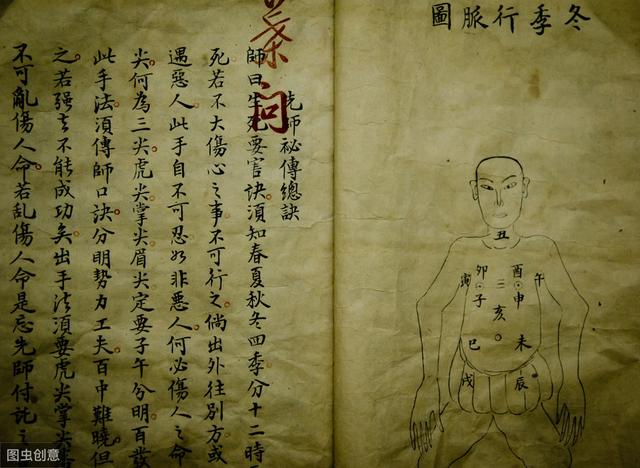 冬季行脈圖
丑
午
酉
卯
寅
申
子
亥
未
巳
辰
戌
葉問
先師祕傳總訣
師曰生死要害訣須知春夏秋冬四季分十二時
死若不大傷心之事不可行之倘出外往別方或
遇惡人此手自不可忍如非惡人何必傷人之命
尖何為三尖虎尖掌尖眉尖定要子午分明百發
此手法須傳師口訣分明勢力工夫百中難曉但
之若強去不能成功矣出手法須要虎尖掌尖
不可亂傷人命若乱傷人命是忘先師付託之
图虫创意